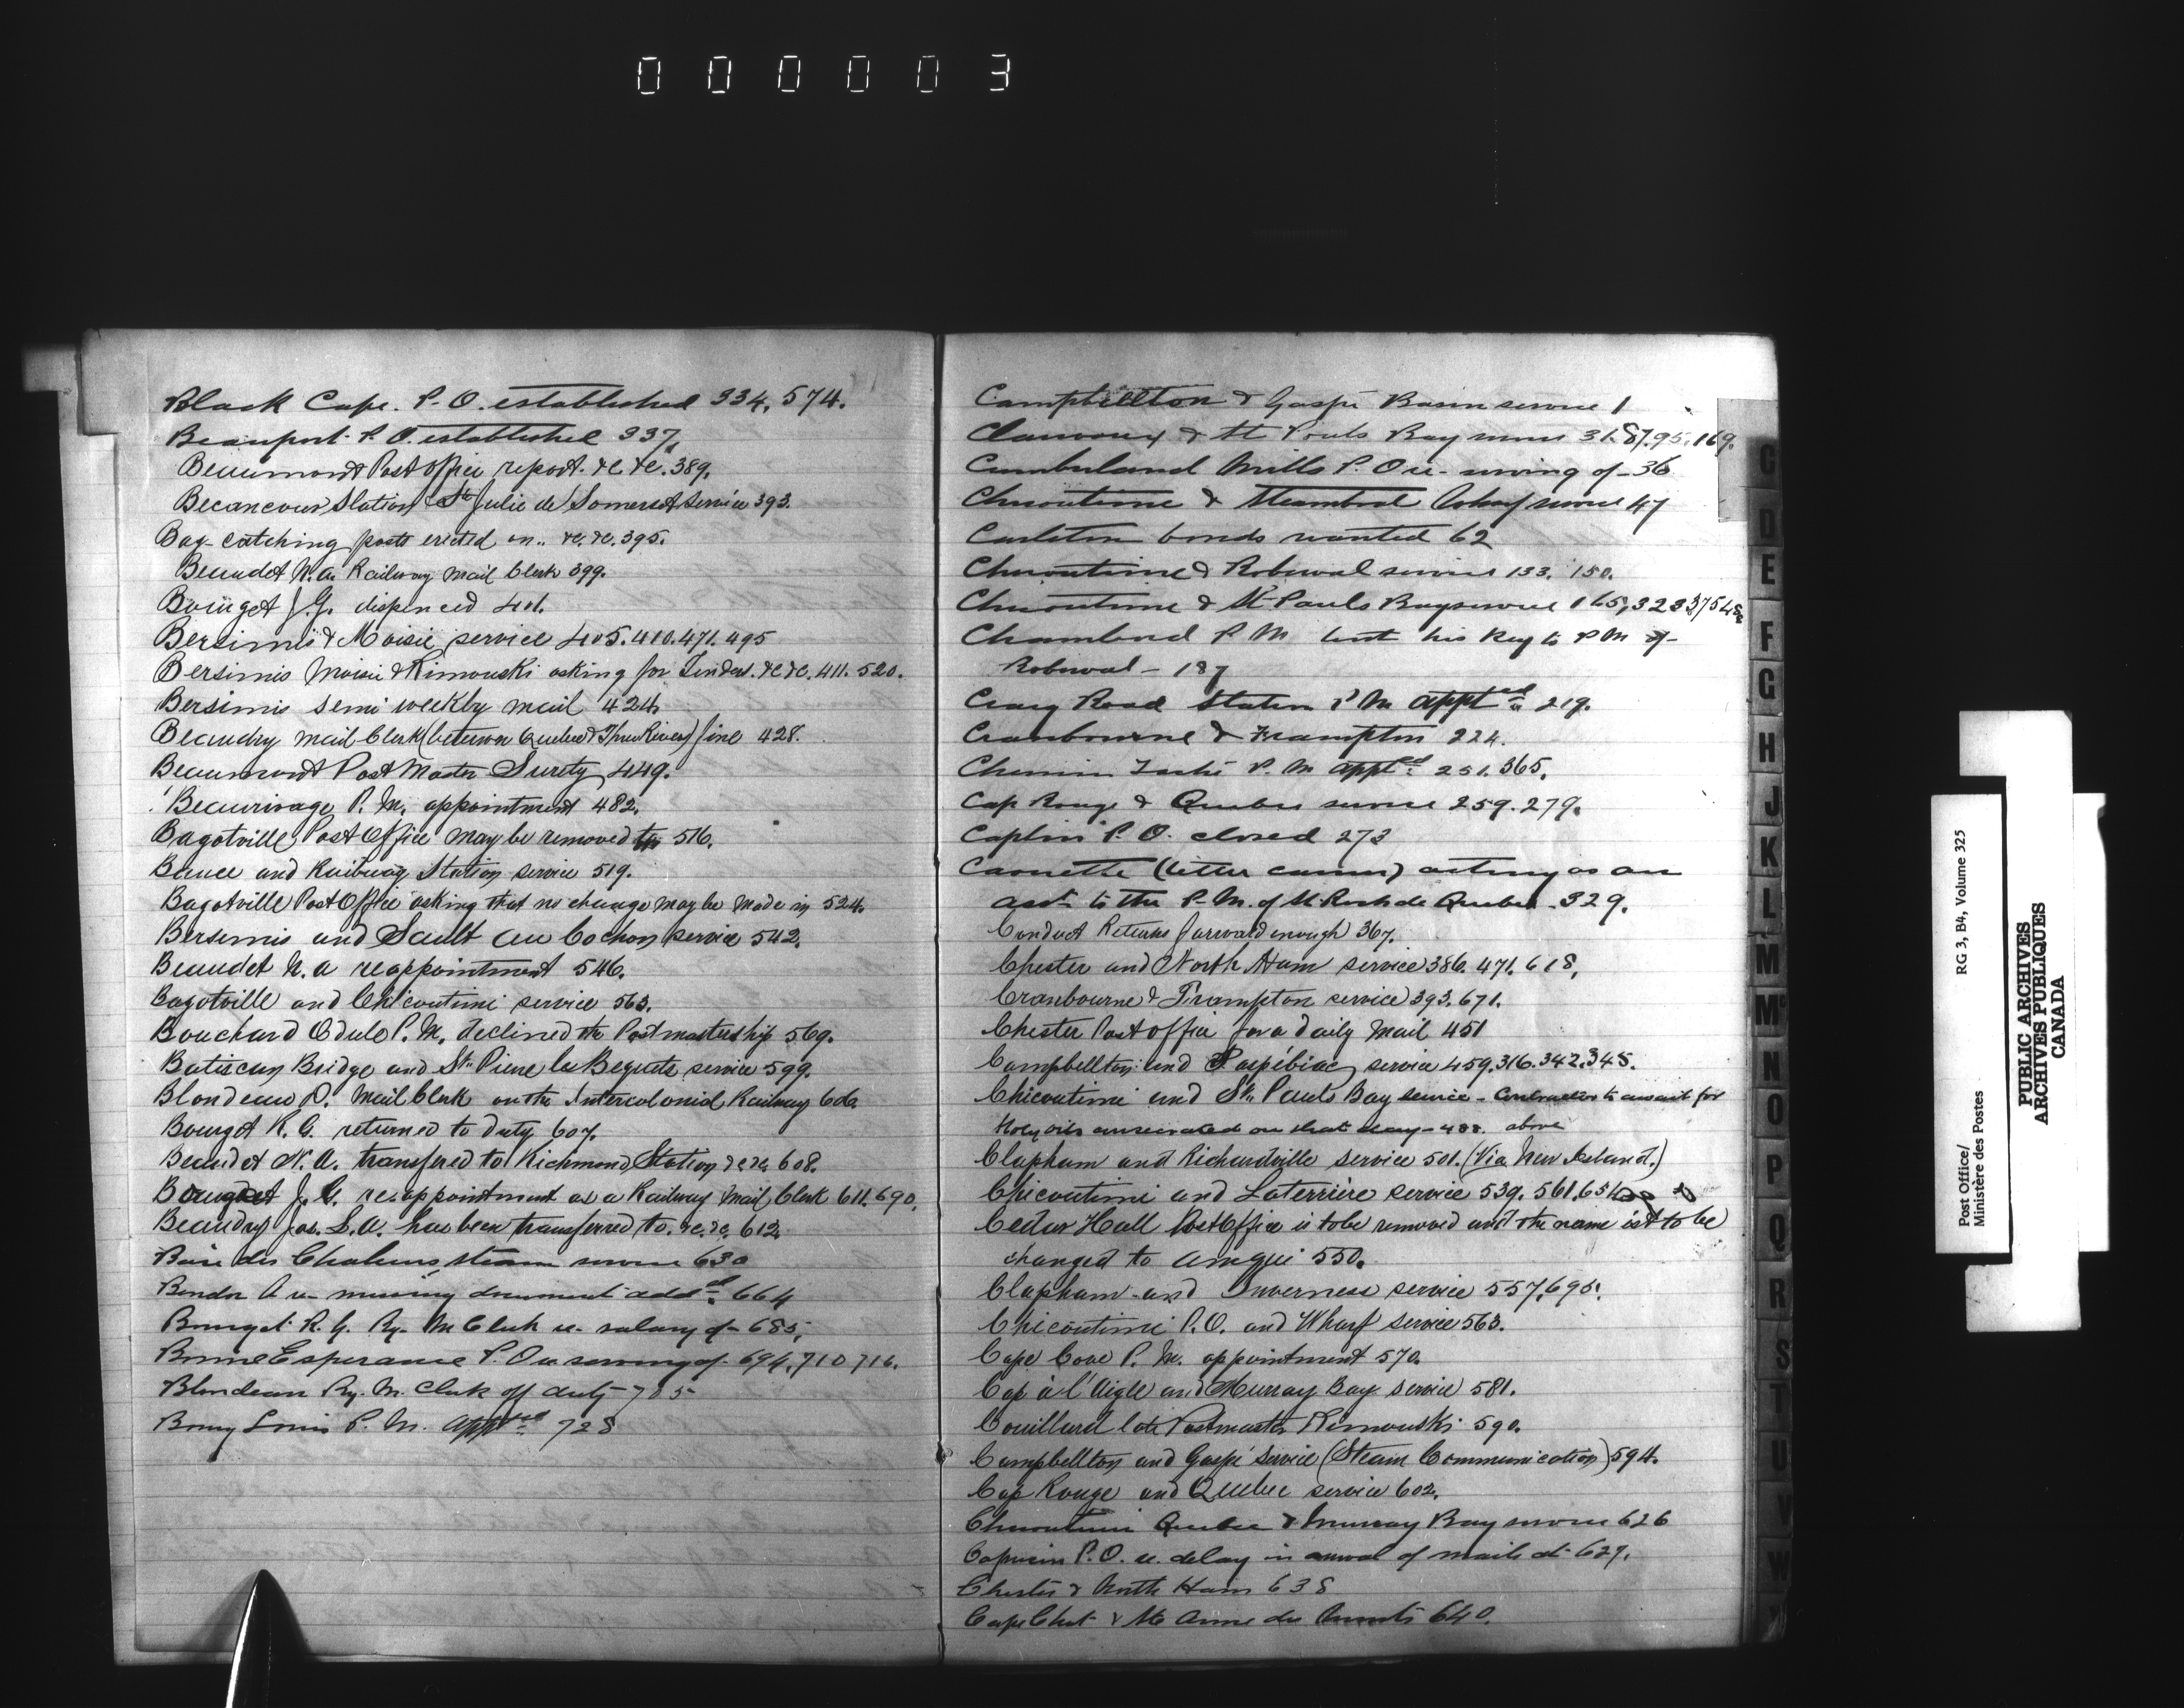 000003
Black Cape. P.O. established 334, 574.
Beauport P.O. established 337,
Beaumont Post office report. &c &c. 389.
Becancour Station & Ste Julie de Somerset service 393.
Bag-catching posts erected on.. &c. &c. 395.
Beaudet N.A. Railway Mail Clerk 399.
Bourget J.G. dispenced 401.
Bersimis & Moisie service 405. 410. 471. 495
Bersimis Moisie & Rimouski asking for Tenders. &c &c. 411. 520.
Bersimis semi weekly mail 424.
Beaudry mail Clerk (between Quebec & Three Rivers) fine 428.
Beaumont Post Master Surety 449.
Beaurivage P.M. appointment 482.
Bagotville Post Office may be removed to 516.
Beauce and Railway Station service 519.
Bagotville Post Office asking that no change may be made in 524.
Bersemis and Sault au Cochon service 542.
Beaudet N.A reappointment 546.
Bagotville and Chicoutimi service 563.
Bouchard Odule P.M. declined the Postmastership 569.
Batiscan Bridge and St. Pierre les Bequets service 599.
Blondeau P. Mail Clerk on the Intercolonial Railway 606.
Bourget R.G. returned to duty 607.
Beaudet N.A. transfered to Richmond Station &c &c 608.
Bourget J.G. re-appointment as a Railway Mail Clerk 611. 690.
Beaudry Jos. L.A. has been transferred to. &c. &c. 612.
Baie des Chaleurs steam service 630
A re- missing document addsd. 664
Bourget R.G. Ry. M Clerk re- salary of- 685,
Bonne Esperance P.O re serving of- 694, 710 716.
Blondeau Ry. M. Clerk off duty- 705-
Louis P.M. apptd 728
Campbellton & Gaspé Basin service 1
& St Pauls Bay service 31. 87. 95. 169.
Cumberland Mills P.O re- serving of- 36
Chicoutimi & Steamboat Wharf service 47
Carleton bonds wanted 62
Chicoutimi & Roberval service 133. 150.
Chicoutimi & St Pauls Bay service 165, 323
Chambord P.M lent his key to P.M of-
Roberval- 187
Craig Road Station P.M apptd 219.
Cranbourne & Frampton 224.
Chemin Taché P.M apptd 251. 365.
Cap Rouge & Quebec service 259. 279.
Caplin P.O. closed 273
Caouette (letter carrier) acting as an
asst. to the P.M. of St. Roch de Quebec. 329.
Conduct Returns forward enough 367.
Chester and North Ham service 386. 471. 618,
Cranbourne & Frampton service 393. 671.
Chester Post office for a daily mail 451
Campbellton and Paspébiac service 459. 316. 342. 345.
Chicoutimi and St. Pauls Bay service - Contractor to await for
Holy oils consecrated on that day - 488. above
Clapham and Richardville service 501. (Via New Ireland.)
Chicoutimi and Laterrière service 539. 561. 651
Cedar Hall Post Office is to be removed and the name is to be
changed to Amqui 550.
Clapham and Inverness service 557. 695.
Chicoutimi P.O. and Wharf service 563.
Cape Cove P.M. appointment 570.
Cap à l'Aigle and Murray Bay service 581.
Couillard late Postmaster Rimouski 590.
Campbellton and Gaspé service (Steam Communication) 594.
Cap Rouge and Quebec service 602.
Chicoutimi Quebec & Murray Bay service 626
Capucin P.O. re. delay in arrival of mails at- 627.
Chester & North Ham 638
Cape Chat & Ste Anne des Monts 640.
C
D
E
F
G
H
J
K
L
M
Mc
N
O
P
Q
R
S
T
U
V
W
Post Office/
Ministère des Postes
RG 3, B4, Volume 325
PUBLIC ARCHIVES
ARCHIVES PUBLIQUES
CANADA